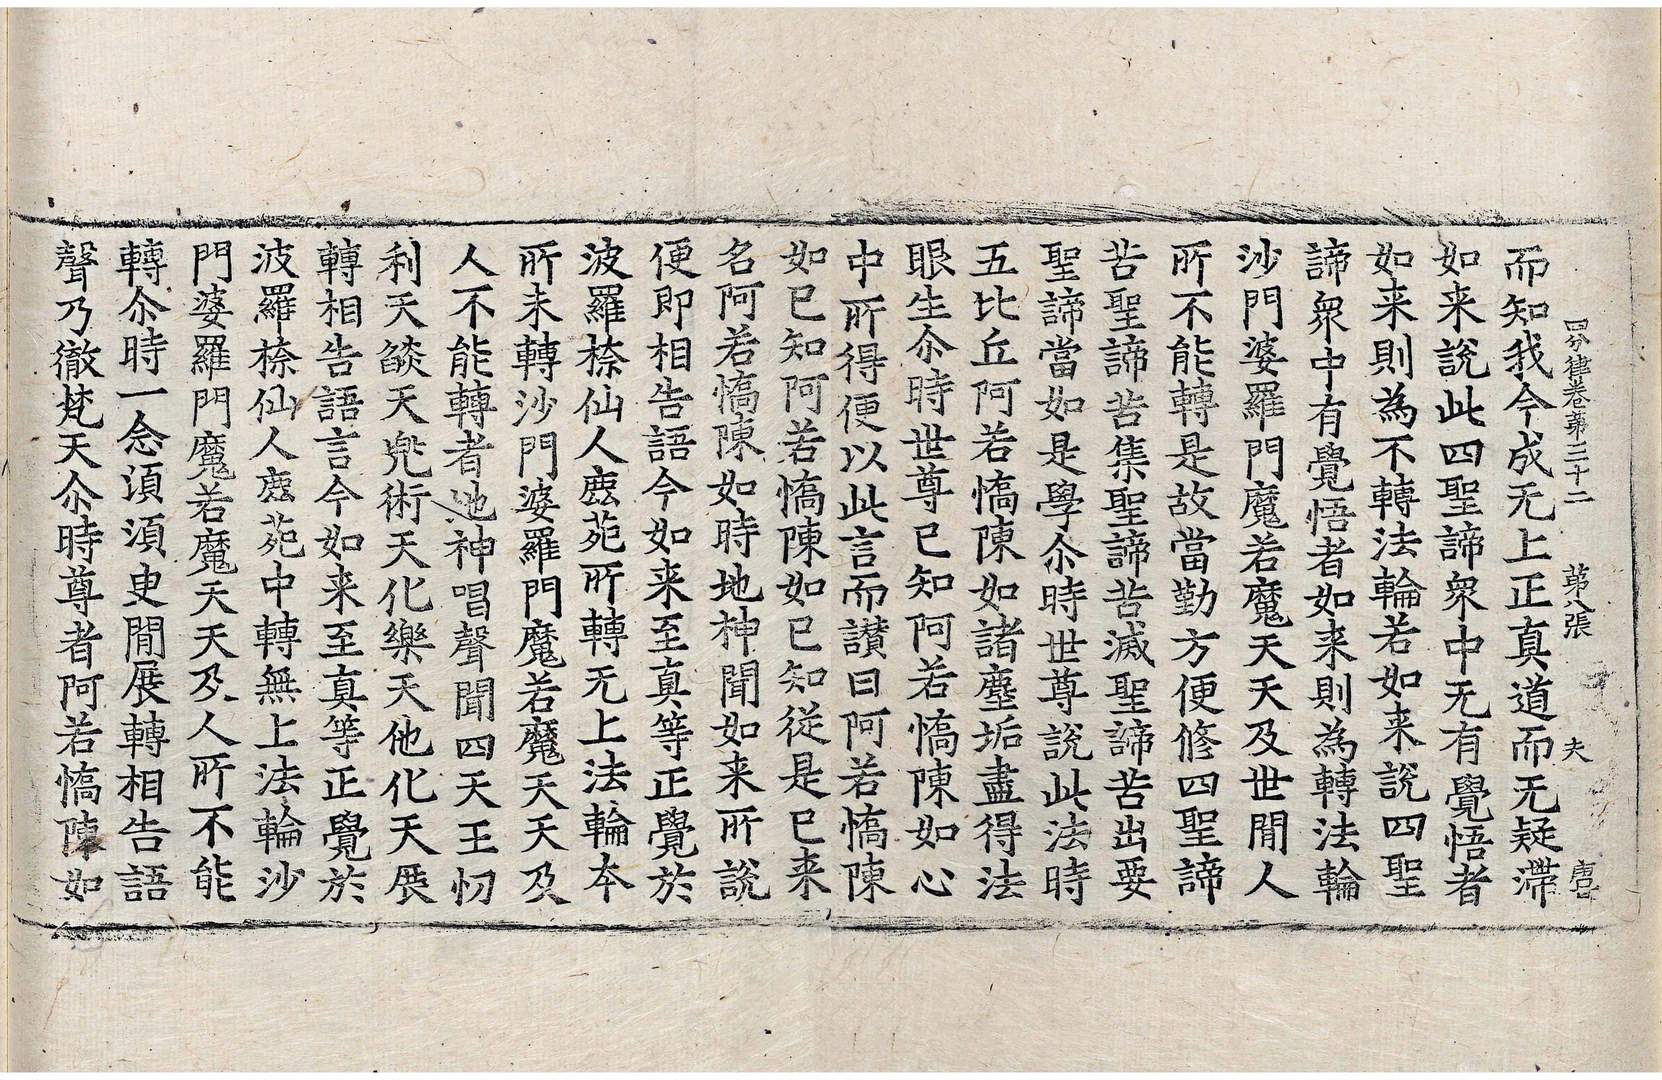 四分律卷第三十二 第八張 夫 唐
而知我今成无上正真道而无疑滯
如来說此四聖諦衆中无有覺悟者
如来則為不轉法輪若如来說四聖
諦衆中有覺悟者如来則為轉法輪
沙門婆羅門魔若魔天天及世閒人
所不能轉是故當勤方便修四聖諦
苦聖諦苦集聖諦苦滅聖諦苦出要
聖諦當如是學尒時世尊說此法時
五比丘阿若憍陳如諸塵垢盡得法
眼生尒時世尊已知阿若憍陳如心
中所得便以此言而讃曰阿若憍陳
如已知阿若憍陳如已知從是已来
名阿若憍陳如時地神聞如来所說
便即相告語今如来至真等正覺於
波羅㮈仙人鹿苑所轉无上法輪本
所未轉沙門婆羅門魔若魔天天及
人不能轉者地神唱聲聞四天王忉
利天𦦨天兠術天化樂天他化天展
轉相告語言今如来至真等正覺於
波羅㮈仙人鹿苑中轉無上法輪沙
門婆羅門魔若魔天天及人所不能
轉尒時一念湏湏㬰閒展轉相告語
聲乃徹梵天尒時尊者阿若憍陳如